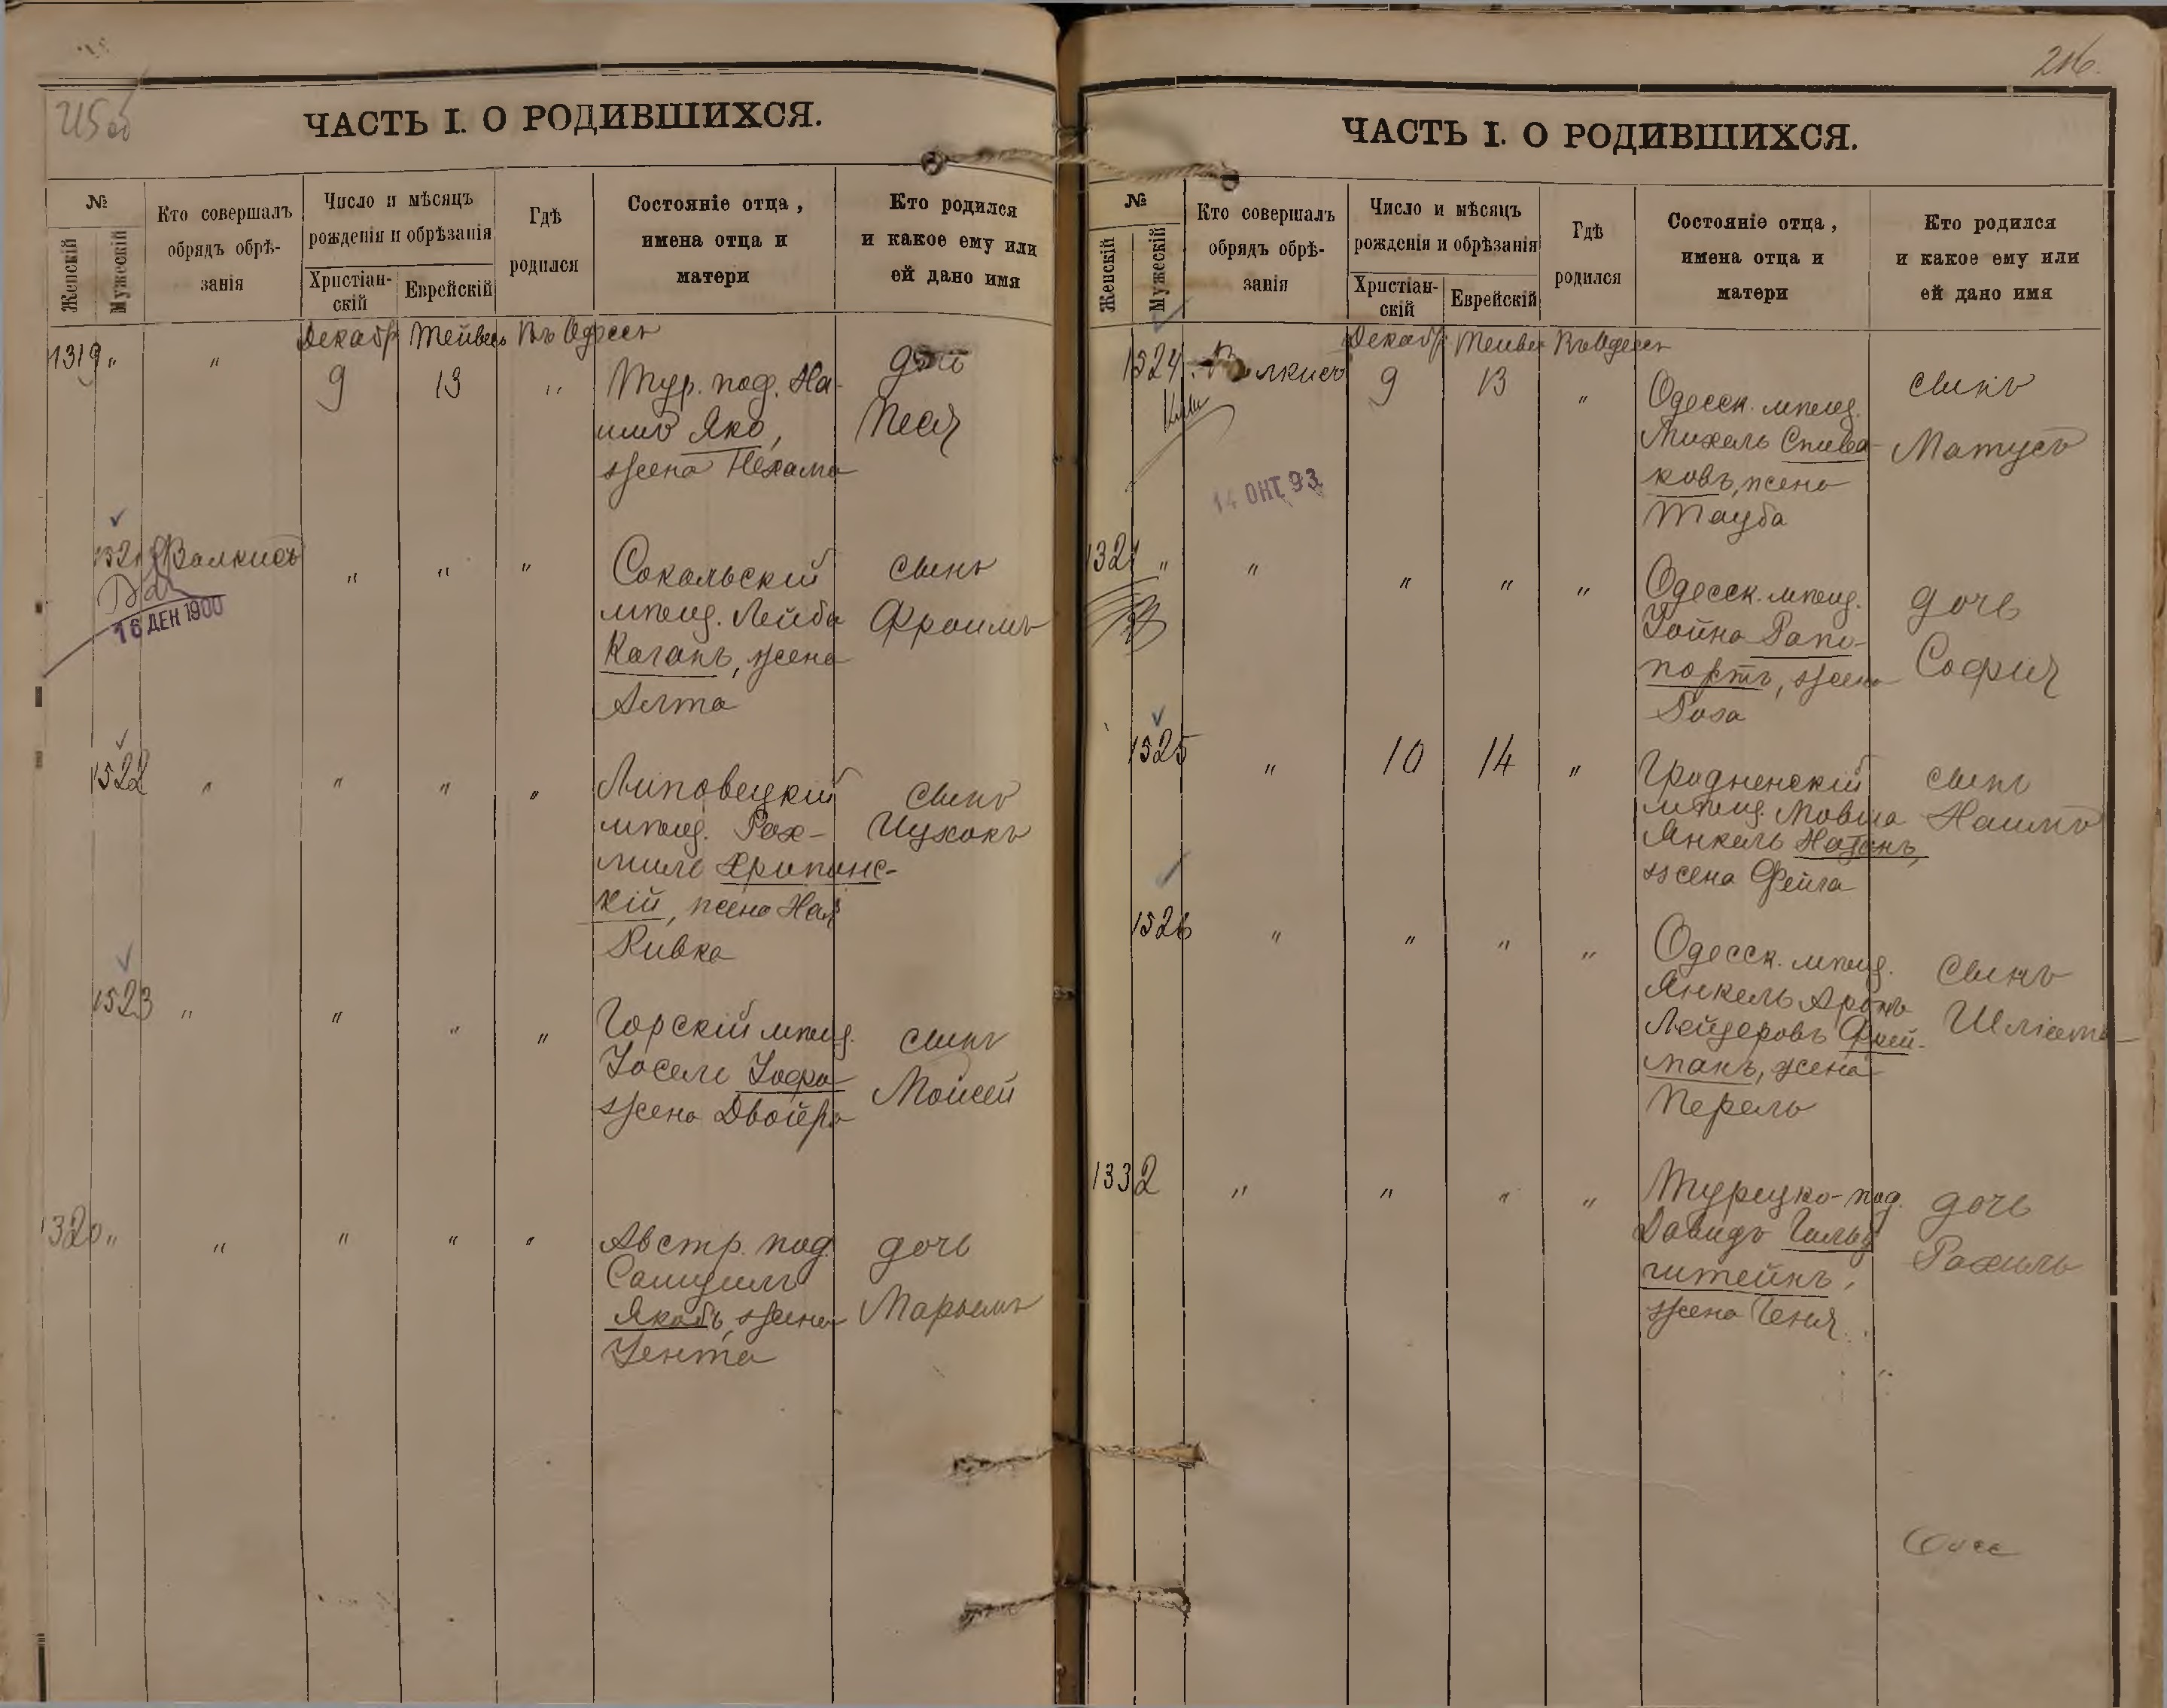 215 об
ЧАСТЬ I. О РОДИВШИХСЯ.
№
Женскій
Мужескій
Кто совершалъ
обрядъ обрѣ-
занія
Число и мѣсяцъ
рожденія и обрѣзанія
Христіан-
скій
Еврейскій
Гдѣ
родился
Состояніе отца,
имена отца и
матери
Кто родился
и какое ему или
ей дано имя
Декабр Тейвесъ Въ Одессѣ
1319 " " 9 13 " Тур. под. На-
Яко,
жена Нехама
дочь
Песя
1521 Валкисъ " " "
16 ДЕК 1900
Сокольскій
мѣщ. Лейба
Каганъ, жена
Алта
сынъ
Фроимъ
1522 " " " "
Липовецкій
мѣщ. Рах-
миль Хрипинс-
кій, жена Хая
Ривка
сынъ
Ицхокъ
1523 " " " "
Горскій мѣщ.
Іосель Іоффа
жена Двойра
сынъ
Моисей
1320 " " " " "
Австр. под.
Самуилъ
Якобъ, жена
Іента
дочь
Марьемъ
216.
ЧАСТЬ I. О РОДИВШИХСЯ.
№
Женскій
Мужескій
Кто совершалъ
обрядъ обрѣ-
занія
Число и мѣсяцъ
рожденія и обрѣзанія
Христіан-
скій
Еврейскій
Гдѣ
родился
Состояніе отца,
имена отца и
матери
Кто родился
и какое ему или
ей дано имя
Декабр Тейвес Въ Одессѣ
1524 Волкисъ 9 13 "
14 ОКТ. 93
Одесск. мѣщ.
Михель Спива-
ковъ, жена
Тауба
сынъ
Матусъ
1321 " " " " "
Одесск. мѣщ.
Іойна Рапо-
портъ, жена
Роза
дочь
Софія
1525 " 10 14 "
Гродненскій
мѣщ. Мовша
Янкель Натанъ,
жена Фейга
сынъ
Нашмъ
1526 " " " "
Одесск. мѣщ.
Янкель Аронъ
Лейзеровъ Фрей-
манъ, жена
Перель
сынъ
Шліома
1332 " " " "
Турецко-под.
Давидъ Гольд
штейнъ,
жена Геня.
дочь
Рахиль